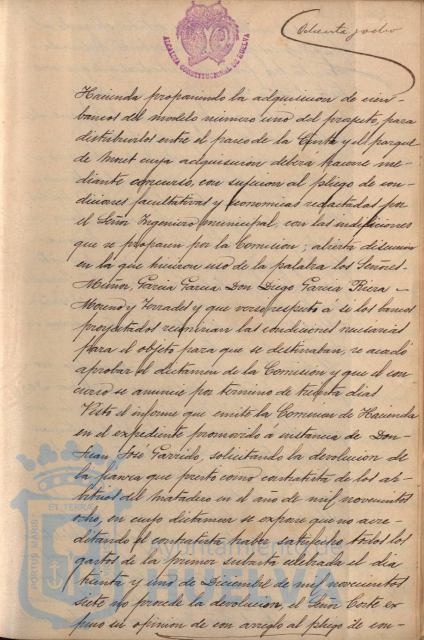 ALCALDIA CONSTITUCIONAL DE HUELVA
Ochenta y ocho
Hacienda proponiendo la adquisicion de cien
bancos del modelo numero uno del proyecto, para
distribuirlos entre el paseo de la Cinta y el parque
de Moret cuya adquisicion deberá hacerse me-
diante concurso, con sujecion al pliego de con-
diciones facultativas y economicas redactadas por
el Señor Ingeniero municipal, con las indicaciones
que se proponen por la Comision; abierta discusion
en la que hicieron uso de la palabra los Señores
Muñoz García García Don Diego García Riera
Moreno y Terrades y que versó respecto á si los bancos
proyectados reunirian las condiciones necesarias
para el objeto para que se destinaban, se acordó
aprobar el dictamen de la Comisión y que el con
curso se anuncie por termino de treinta dias
Visto el informe que emite la Comision de Hacienda
en el expediente promovido á instancia de Don
Juan José Garrido, solicitando la devolucion de
la fianza que prestó como contratista de los ar-
bitrios del matadero en el año de mil novecientos
ocho, en cuyo dictamen se expone que no acre-
ditando el contratista haber satisfecho todos los
gastos de la primer subasta celebrada el dia
treinta y uno de Diciembre de mil novecientos
siete no procede la devolucion, el Señor Corte ex
puso su opinion de con arreglo al pliego de con-
PORTUS MARIS ET TERRAE
Ayuntamiento de
HUELVA